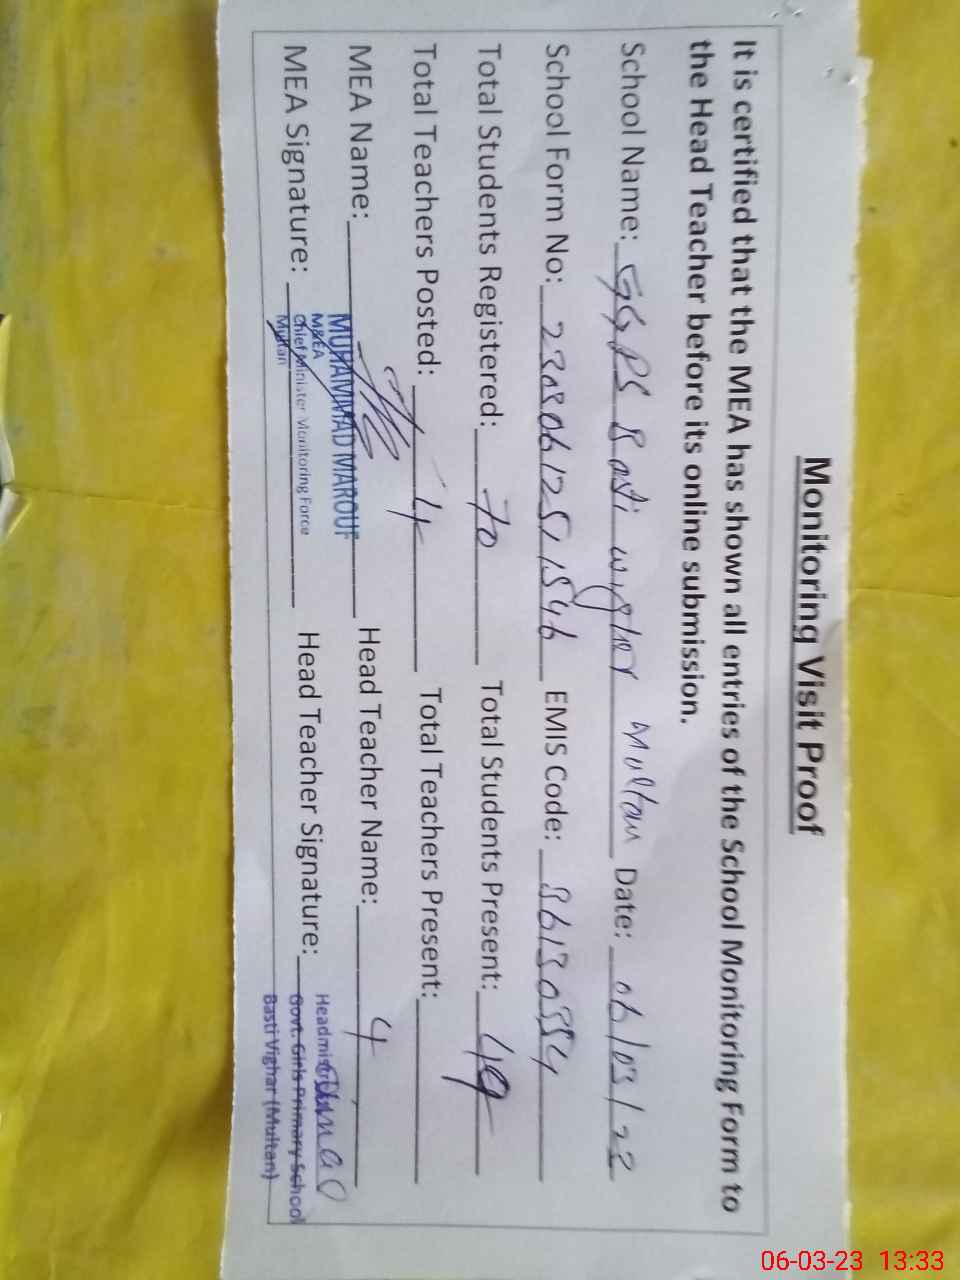 Monitoring Visit Proof
It is certified that the MEA has shown all entries of the School Monitoring Form to
the Head Teacher before its online submission.
School Name: GGPS Basti wigher Multan Date: 06/03/23
School Form No: 23806125/1546 EMIS Code:
Total Students Registered: 70 Total Students Present: 49
Total Teachers Posted: 4 Total Teachers Present:
MEA Name: MUHAMMAD MAROUF Head Teacher Name: 4
MEA Signature: Head Teacher Signature:
M&EA
Chief Minister Monitoring Force
Multan
Headmistress
Govt. Girls Primary School
Basti Vighar (Multan)
06-03-23 13:33